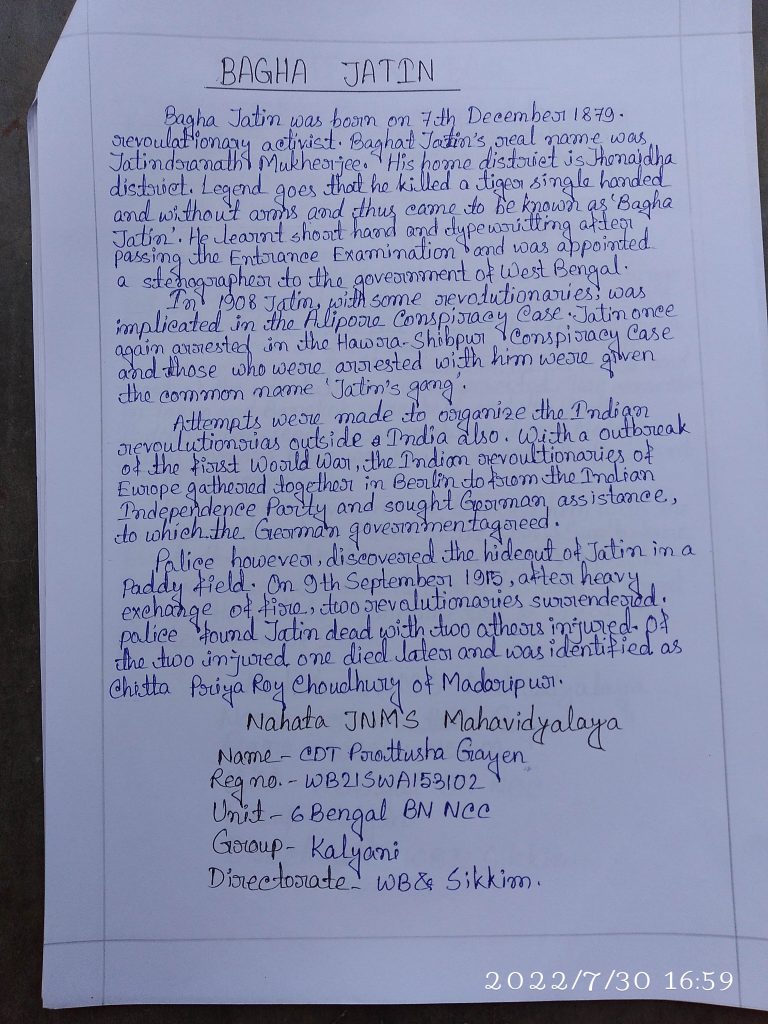 BAGHA JATIN
Bagha Jatin was born on 7th December 1879.
revoulationary activist. Baghat Jatin's real name was
Jatindranath Mukherjee. His home district is Jhenajdha
district. Legend goes that he killed a tiger single handed
and without arms and thus came to be known as 'Bagha
Jatin'. He learnt short hand and typewritting after
passing the Entrance Examination and was appointed
a stenographer to the government of West Bengal.
In 1908 Jatin, with some revolutionaries, was
implicated in the Alipore Conspiracy Case. Jatin once
again arrested in the Hawra-Shibpur Conspiracy Case
and those who were arrested with him were given
the common name 'Jatin's gang'.
Attempts were made to organize the Indian
revoulutionrias outside India also. With a outbreak
of the first World War, the Indian revoultionaries of
Europe gathered together in Berlin to from the Indian
Independence Party and sought German assistance,
to which the German government agreed.
Police however, discovered the hideout of Jatin in a
Paddy field. On 9th September 1915, after heavy
exchange of fire, two revalutionaries surrendered.
police found Jatin dead with two others injured. Of
the two injured one died later and was identified as
Chitta Priya Roy Choudhury of Madaripur.
Nahata JNMS Mahavidyalaya
Name - CDT Prattusha Gayen
Reg no. - WB21SWA153102
Unit - 6 Bengal BN NCC
Group - Kalyani
Directorate - WB & Sikkim.
2022/7/30 16:59